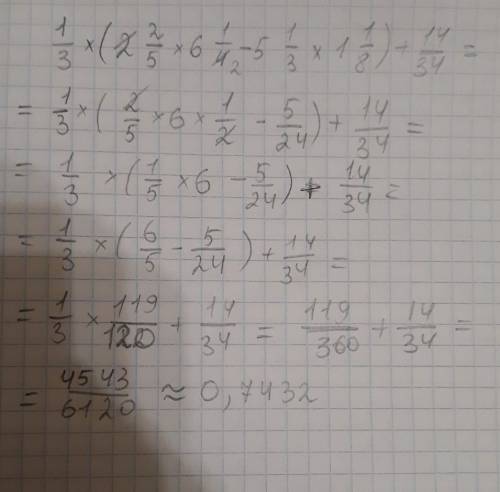 1/3 × (2 2/5 × 6 1/4 2 - 5 1/3 × 1 1/8) + 14/34 =
= 1/3 × (2/5 × 6 × 1/2 - 5/24) + 14/34 =
= 1/3 × (1/5 × 6 - 5/24) + 14/34 =
= 1/3 × (6/5 - 5/24) + 14/34 =
= 1/3 × 119/120 + 14/34 = 119/360 + 14/34 =
= 4543/6120 ≈ 0,7432